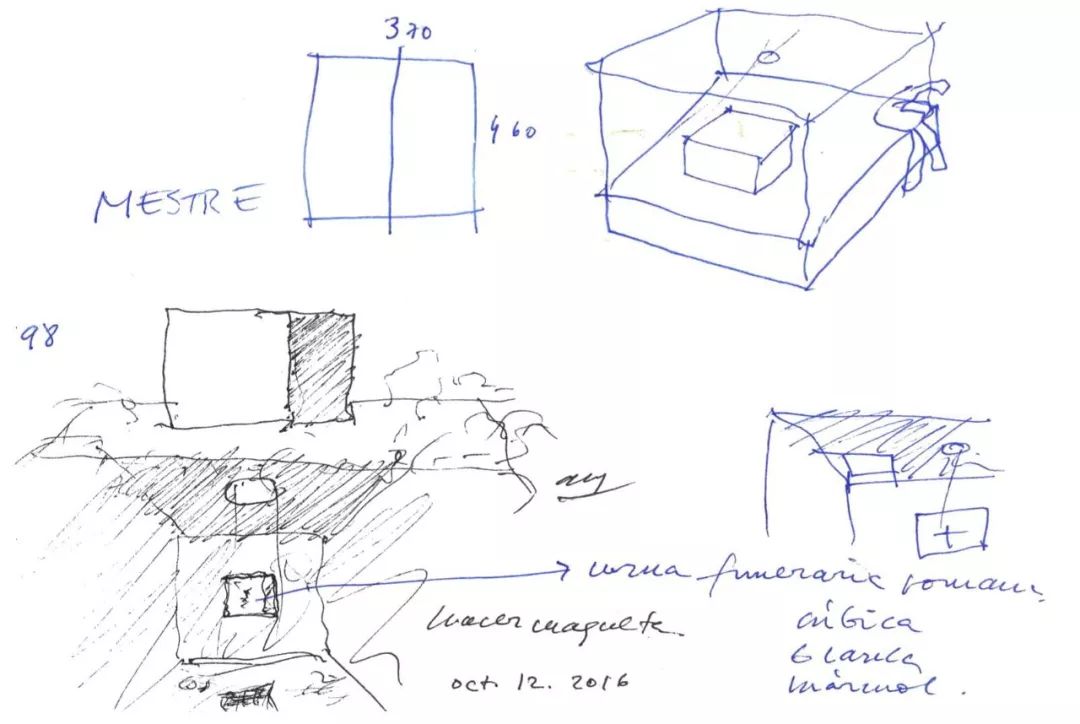 370
460
MESTRE
98
urna funeraria romana
cúbica
blanca
mármol.
hacer maqueta.
oct. 12. 2016